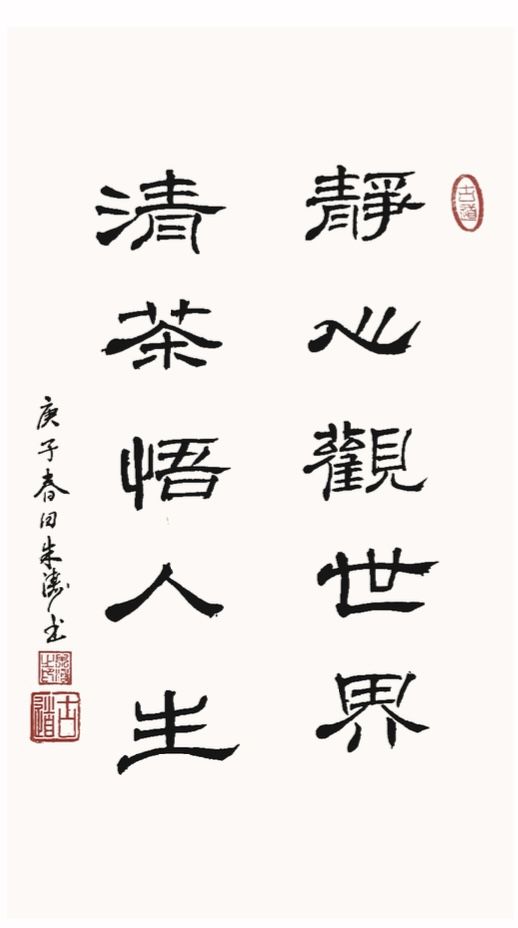 靜心觀世界
清茶悟人生
庚子春日朱濤书
古道
古道